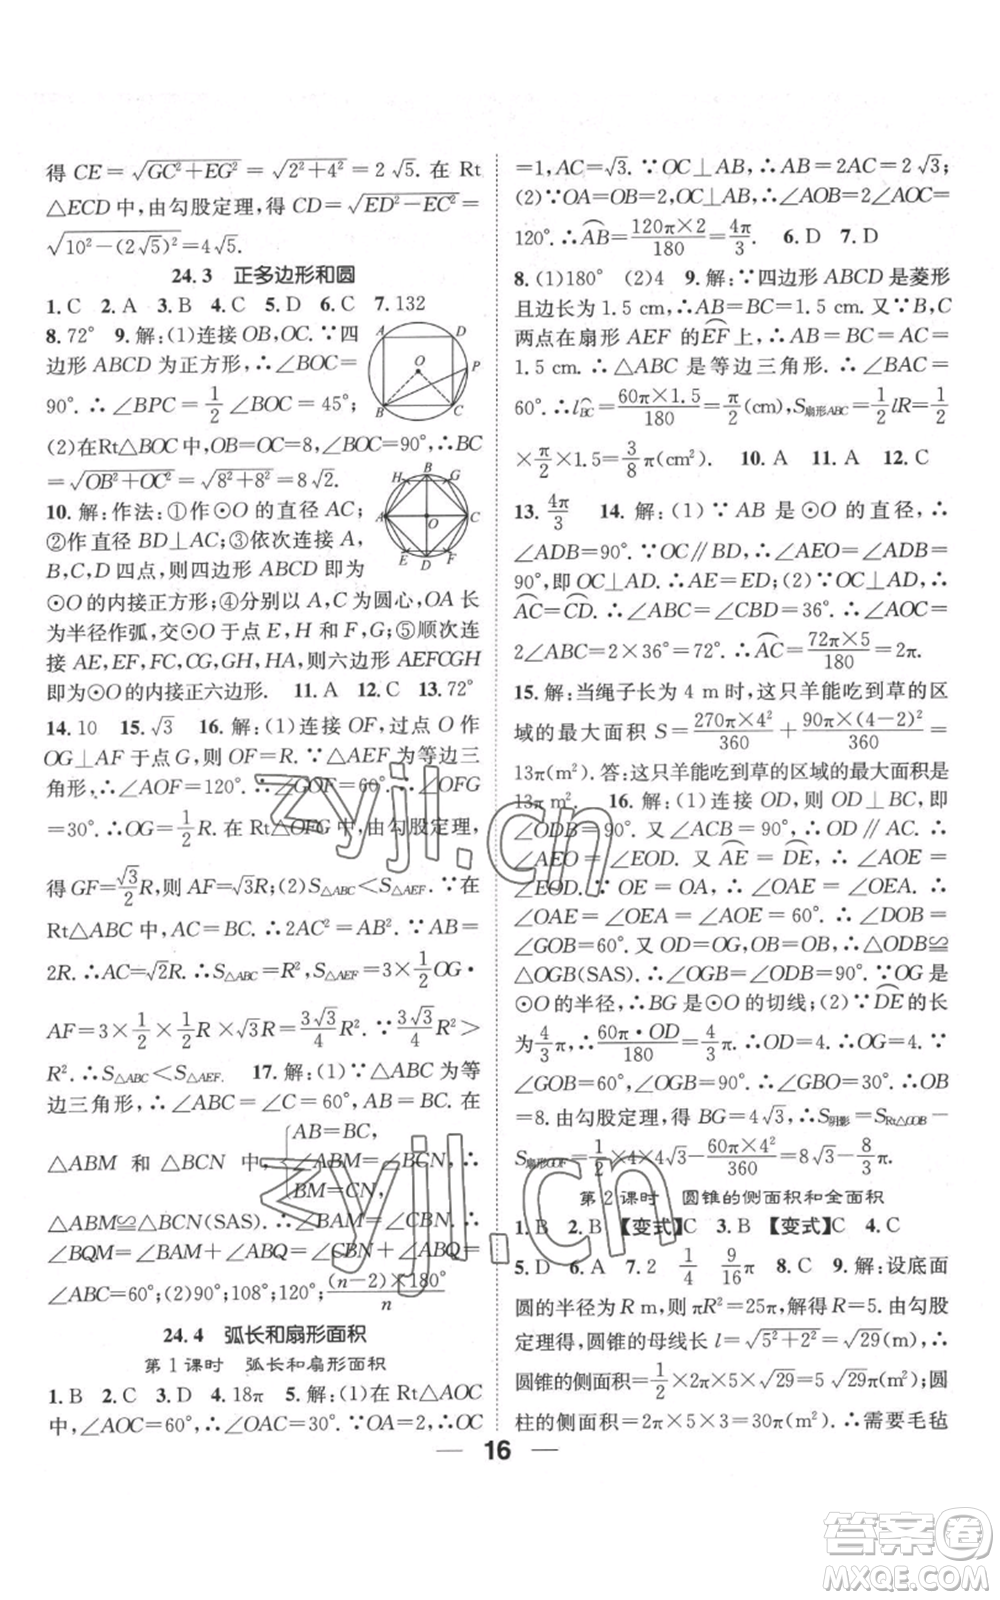 得 CE=√(GC²+EG²)=√(2²+4²)=2√5. 在 Rt
△ECD 中,由勾股定理,得 CD=√(ED²-EC²)=
√(10²-(2√5)²)=4√5.
24.3 正多边形和圆
1. C 2. A 3. B 4. C 5. D 6. C 7. 132
8. 72° 9. 解:(1)连接 OB,OC. ∵四
边形 ABCD 为正方形,∴∠BOC=
90°. ∴∠BPC=1/2∠BOC=45°;
(2)在Rt△BOC中,OB=OC=8,∠BOC=90°,∴BC
=√(OB²+OC²)=√(8²+8²)=8√2.
10. 解:作法:①作⊙O 的直径 AC;
②作直径 BD⊥AC;③依次连接 A,
B,C,D 四点,则四边形 ABCD 即为
⊙O 的内接正方形;④分别以 A,C 为圆心,OA 长
为半径作弧,交⊙O 于点 E,H 和 F,G;⑤顺次连
接 AE,EF,FC,CG,GH,HA,则六边形 AEFCGH
即为⊙O 的内接正六边形. 11. A 12. C 13. 72°
14. 10 15. √3 16. 解:(1)连接 OF,过点 O 作
OG⊥AF 于点 G,则 OF=R. ∵△AEF 为等边三
角形,∴∠AOF=120°. ∴∠GOF=60°. ∴∠OFG
=30°. ∴OG=1/2R. 在 Rt△OFG 中,由勾股定理,
得 GF=√3/2R,则 AF=√3R;(2)S△ABC<S△AEF. ∵在
Rt△ABC 中,AC=BC. ∴2AC²=AB². ∵AB=
2R. ∴AC=√2R. ∴S△ABC=R²,S△AEF=3×1/2OG·
AF=3×1/2×1/2R×√3R=3√3/4R². ∵3√3/4R²>
R². ∴S△ABC<S△AEF. 17. 解:(1)∵△ABC 为等
边三角形,∴∠ABC=∠C=60°,AB=BC. 在
△ABM 和 △BCN 中,{AB=BC, ∠ABM=∠BCN, BM=CN, ∴
△ABM≌△BCN(SAS). ∴∠BAM=∠CBN. ∴
∠BQM=∠BAM+∠ABQ=∠CBN+∠ABQ=
∠ABC=60°;(2)90°;108°;120°;(n-2)×180°/n
24.4 弧长和扇形面积
第1课时 弧长和扇形面积
1. B 2. C 3. D 4. 18π 5. 解:(1)在 Rt△AOC
中,∠AOC=60°,∴∠OAC=30°. ∵OA=2,∴OC
=1,AC=√3. ∵OC⊥AB,∴AB=2AC=2√3;
(2)∵OA=OB=2,OC⊥AB,∴∠AOB=2∠AOC=
120°. ∴AB⌒=120π×2/180=4π/3. 6. D 7. D
8. (1)180° (2)4 9. 解:∵四边形 ABCD 是菱形
且边长为 1.5 cm,∴AB=BC=1.5 cm. 又∵B,C
两点在扇形 AEF 的EF⌒上,∴AB=BC=AC=
1.5 cm. ∴△ABC 是等边三角形. ∴∠BAC=
60°. ∴l BC⌒=60π×1.5/180=π/2(cm),S扇形ABC=1/2lR=1/2
×π/2×1.5=3/8π(cm²). 10. A 11. A 12. C
13. 4π/3 14. 解:(1)∵AB 是⊙O 的直径,∴
∠ADB=90°. ∵OC∥BD,∴∠AEO=∠ADB=
90°,即 OC⊥AD. ∴AE=ED;(2)∵OC⊥AD,∴
AC⌒=CD⌒. ∴∠ABC=∠CBD=36°. ∴∠AOC=
2∠ABC=2×36°=72°. ∴AC⌒=72π×5/180=2π.
15. 解:当绳子长为 4 m 时,这只羊能吃到草的区
域的最大面积 S=270π×4²/360+90π×(4-2)²/360=
13π(m²). 答:这只羊能吃到草的区域的最大面积是
13π m². 16. 解:(1)连接 OD,则 OD⊥BC,即
∠ODB=90°. 又∵∠ACB=90°,∴OD∥AC. ∴
∠AEO=∠EOD. 又∵AE⌒=DE⌒,∴∠AOE=
∠EOD. ∴∠AEO=∠AOE. ∵OE=OA,∴
∠OAE=∠OEA=∠AOE=60°. ∴∠DOB=
∠GOB=60°. 又∵OD=OG,OB=OB,∴△ODB≌
△OGB(SAS). ∴∠OGB=∠ODB=90°. ∵OG是
⊙O 的半径,∴BG 是⊙O 的切线;(2)∵DE⌒的长
为4/3π,∴60π·OD/180=4/3π. ∴OD=4. ∴OG=4. ∵
∠GOB=60°,∠OGB=90°. ∴∠GBO=30°. ∴OB
=8. 由勾股定理,得 BG=4√3,∴S阴影=SRt△GOB-
S扇形GOF=1/2×4×4√3-60π×4²/360=8√3-8/3π.
第2课时 圆锥的侧面积和全面积
1. B 2. B 【变式】C 3. B 【变式】C 4. C
5. D 6. A 7. 2 1/4 9/16π 8. C 9. 解:设底面
圆的半径为 R m,则 πR²=25π,解得 R=5. 由勾股
定理得,圆锥的母线长 l=√(5²+2²)=√29(m),∴
圆锥的侧面积=1/2×2π×5×√29=5√29π(m²);圆
柱的侧面积=2π×5×3=30π(m²). ∴需要毛毡
16
A
D
O
P
B
C
H
B
G
A
O
C
E
D
F
zyjl.cn
zyjl.cn
答案圈
MXQE.COM